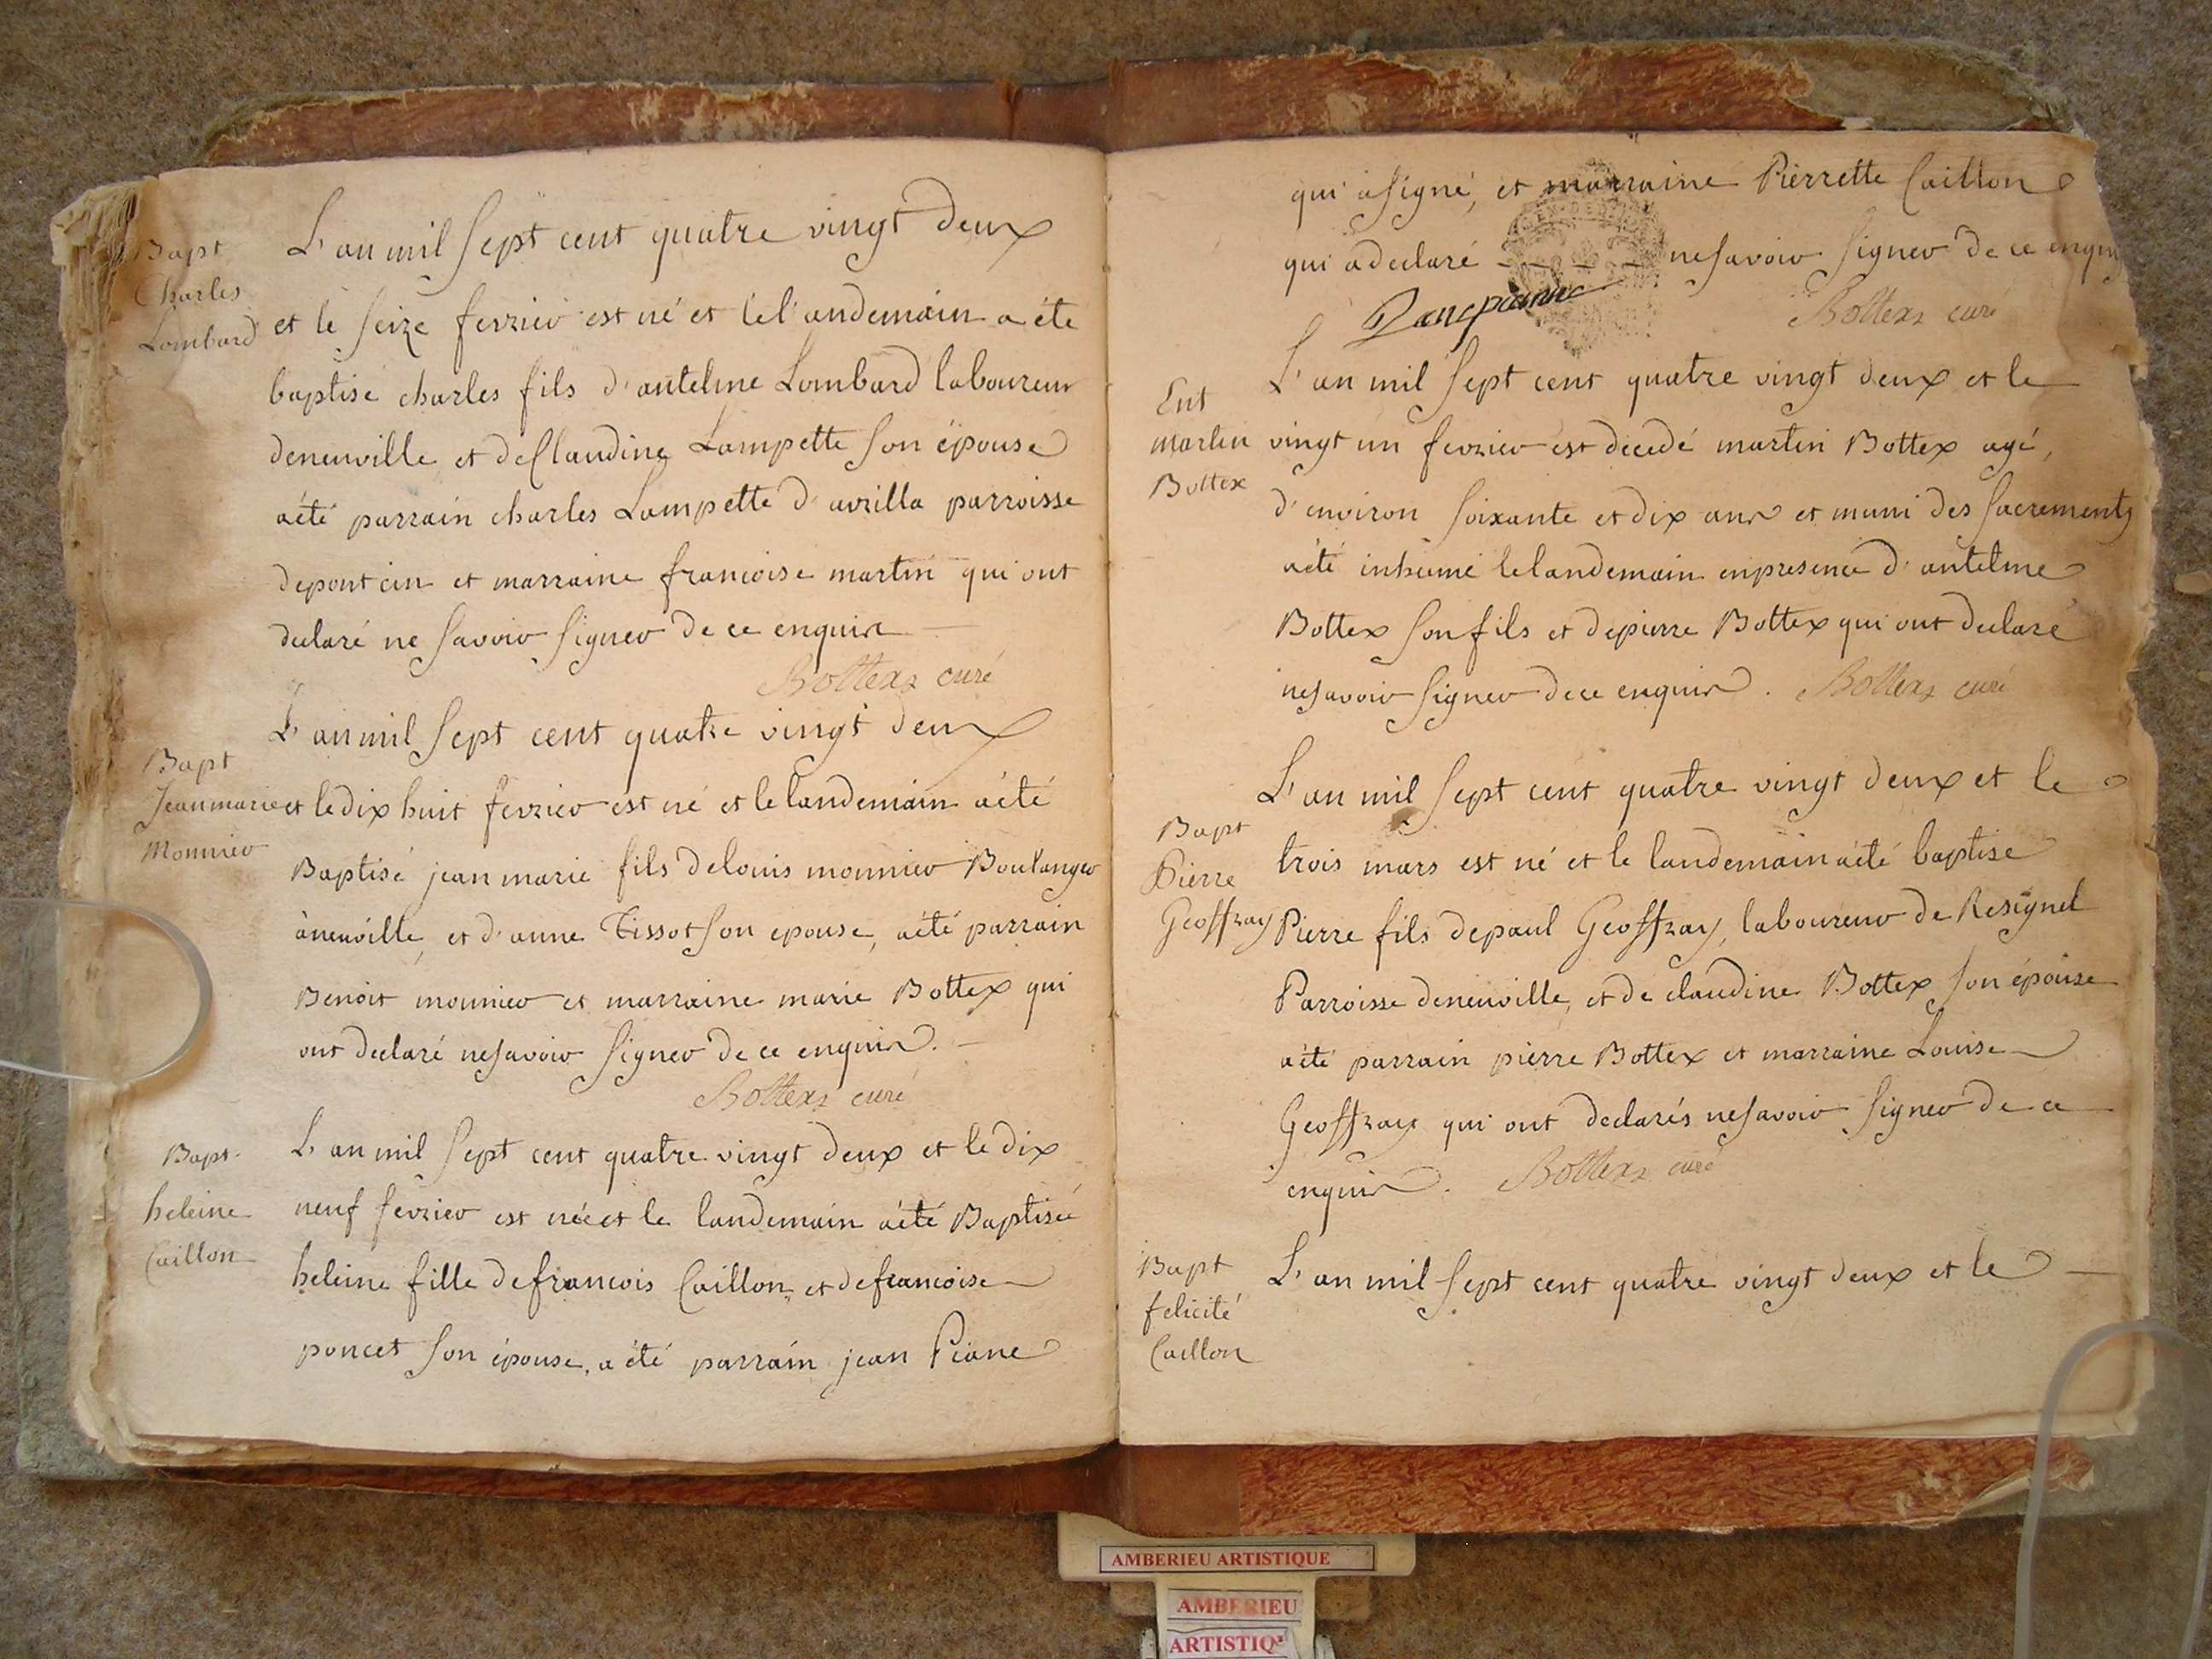 Bapt
Charles
Lombard
L'an mil sept cent quatre vingt deux
et le seize fevrier est né et le l'andemain a été
baptisé charles fils d'antelme Lombard laboureur
deneuville et de Claudine Lampette son épouse
aété parrain charles Lampette d'avrilla parroisse
depont cin et marraine francoise martin qui ont
declaré ne savoir signer de ce enquis
Bottex curé
Bapt
Jean marie
Monnier
L'an mil sept cent quatre vingt deux
et le dix huit fevrier est né et le landemain aété
Baptisé jean marie fils delouis monnier Boulanger
àneuville, et d'anne Tissot son epouse, aété parrain
Benoit monnier et marraine marie Bottex qui
ont declaré nesavoir signer de ce enquis.
Bottex curé
Bapt
heleine
Caillon
L'an mil sept cent quatre vingt deux et le dix
neuf fevrier est née et le landemain aété Baptisée
heleine fille defrancois Caillon, et defrancoise
poncet son épouse, a été parrain jean Piane
qui asigné, et marraine Pierrette Caillon
qui adeclaré nesavoir signer de ce enquis
Bottex curé
Ent
martin
Bottex
L'an mil sept cent quatre vingt deux et le
vingt un fevrier est decedé martin Bottex agé,
d'environ soixante et dix ans et muni des sacrements
aété inhumé lelandemain enpresence d'antelme
Bottex son fils et depierre Bottex qui ont declaré
nesavoir signer dece enquis. Bottex curé
Bapt
Pierre
Geoffray
L'an mil sept cent quatre vingt deux et le
trois mars est né et le landemain aété baptisé
Pierre fils depaul Geoffray, laboureur de Resignel
Parroisse deneuville, et de claudine Bottex son épouse
aété parrain pierre Bottex et marraine Louise
Geoffray qui ont declarés nesavoir signer de ce
enquis. Bottex curé
Bapt
felicité
Caillon
L'an mil sept cent quatre vingt deux et le
AMBERIEU ARTISTIQUE
AMBERIEU
ARTISTIQ